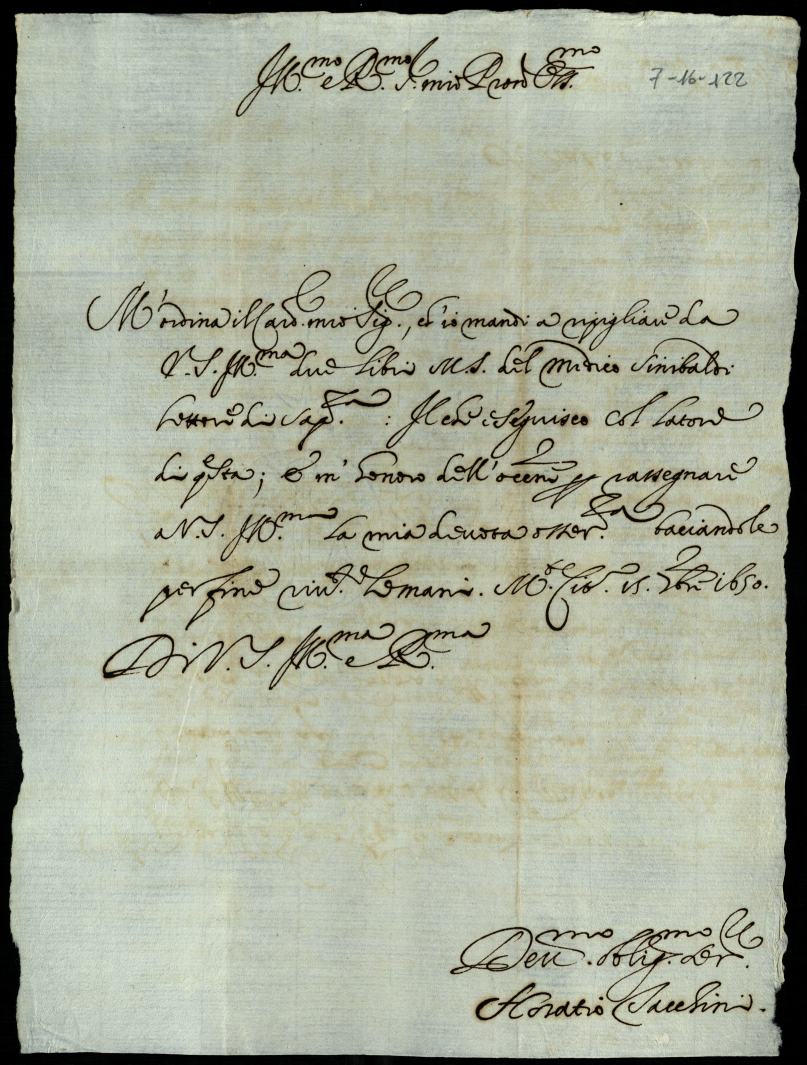 Ill.mo e R.mo S. mio Pron Oss.mo
7-16-122
M'ordina il Card. mio Sig.re, ch'io mandi a ripigliare da
V. S. Ill.ma due libri M.S. del medico Sinibaldi
lettore di Sap.za : Il che eseguisco col latore
di q.sta; e m' honoro dell'occ.ne p rassegnare
a V. S. Ill.ma la mia devota osser.za baciandole
per fine le mani. 15. 1650.
Di V. S. Ill.ma e R.ma
Dev.mo oblig.mo Ser.re
Horatio Sacchini.